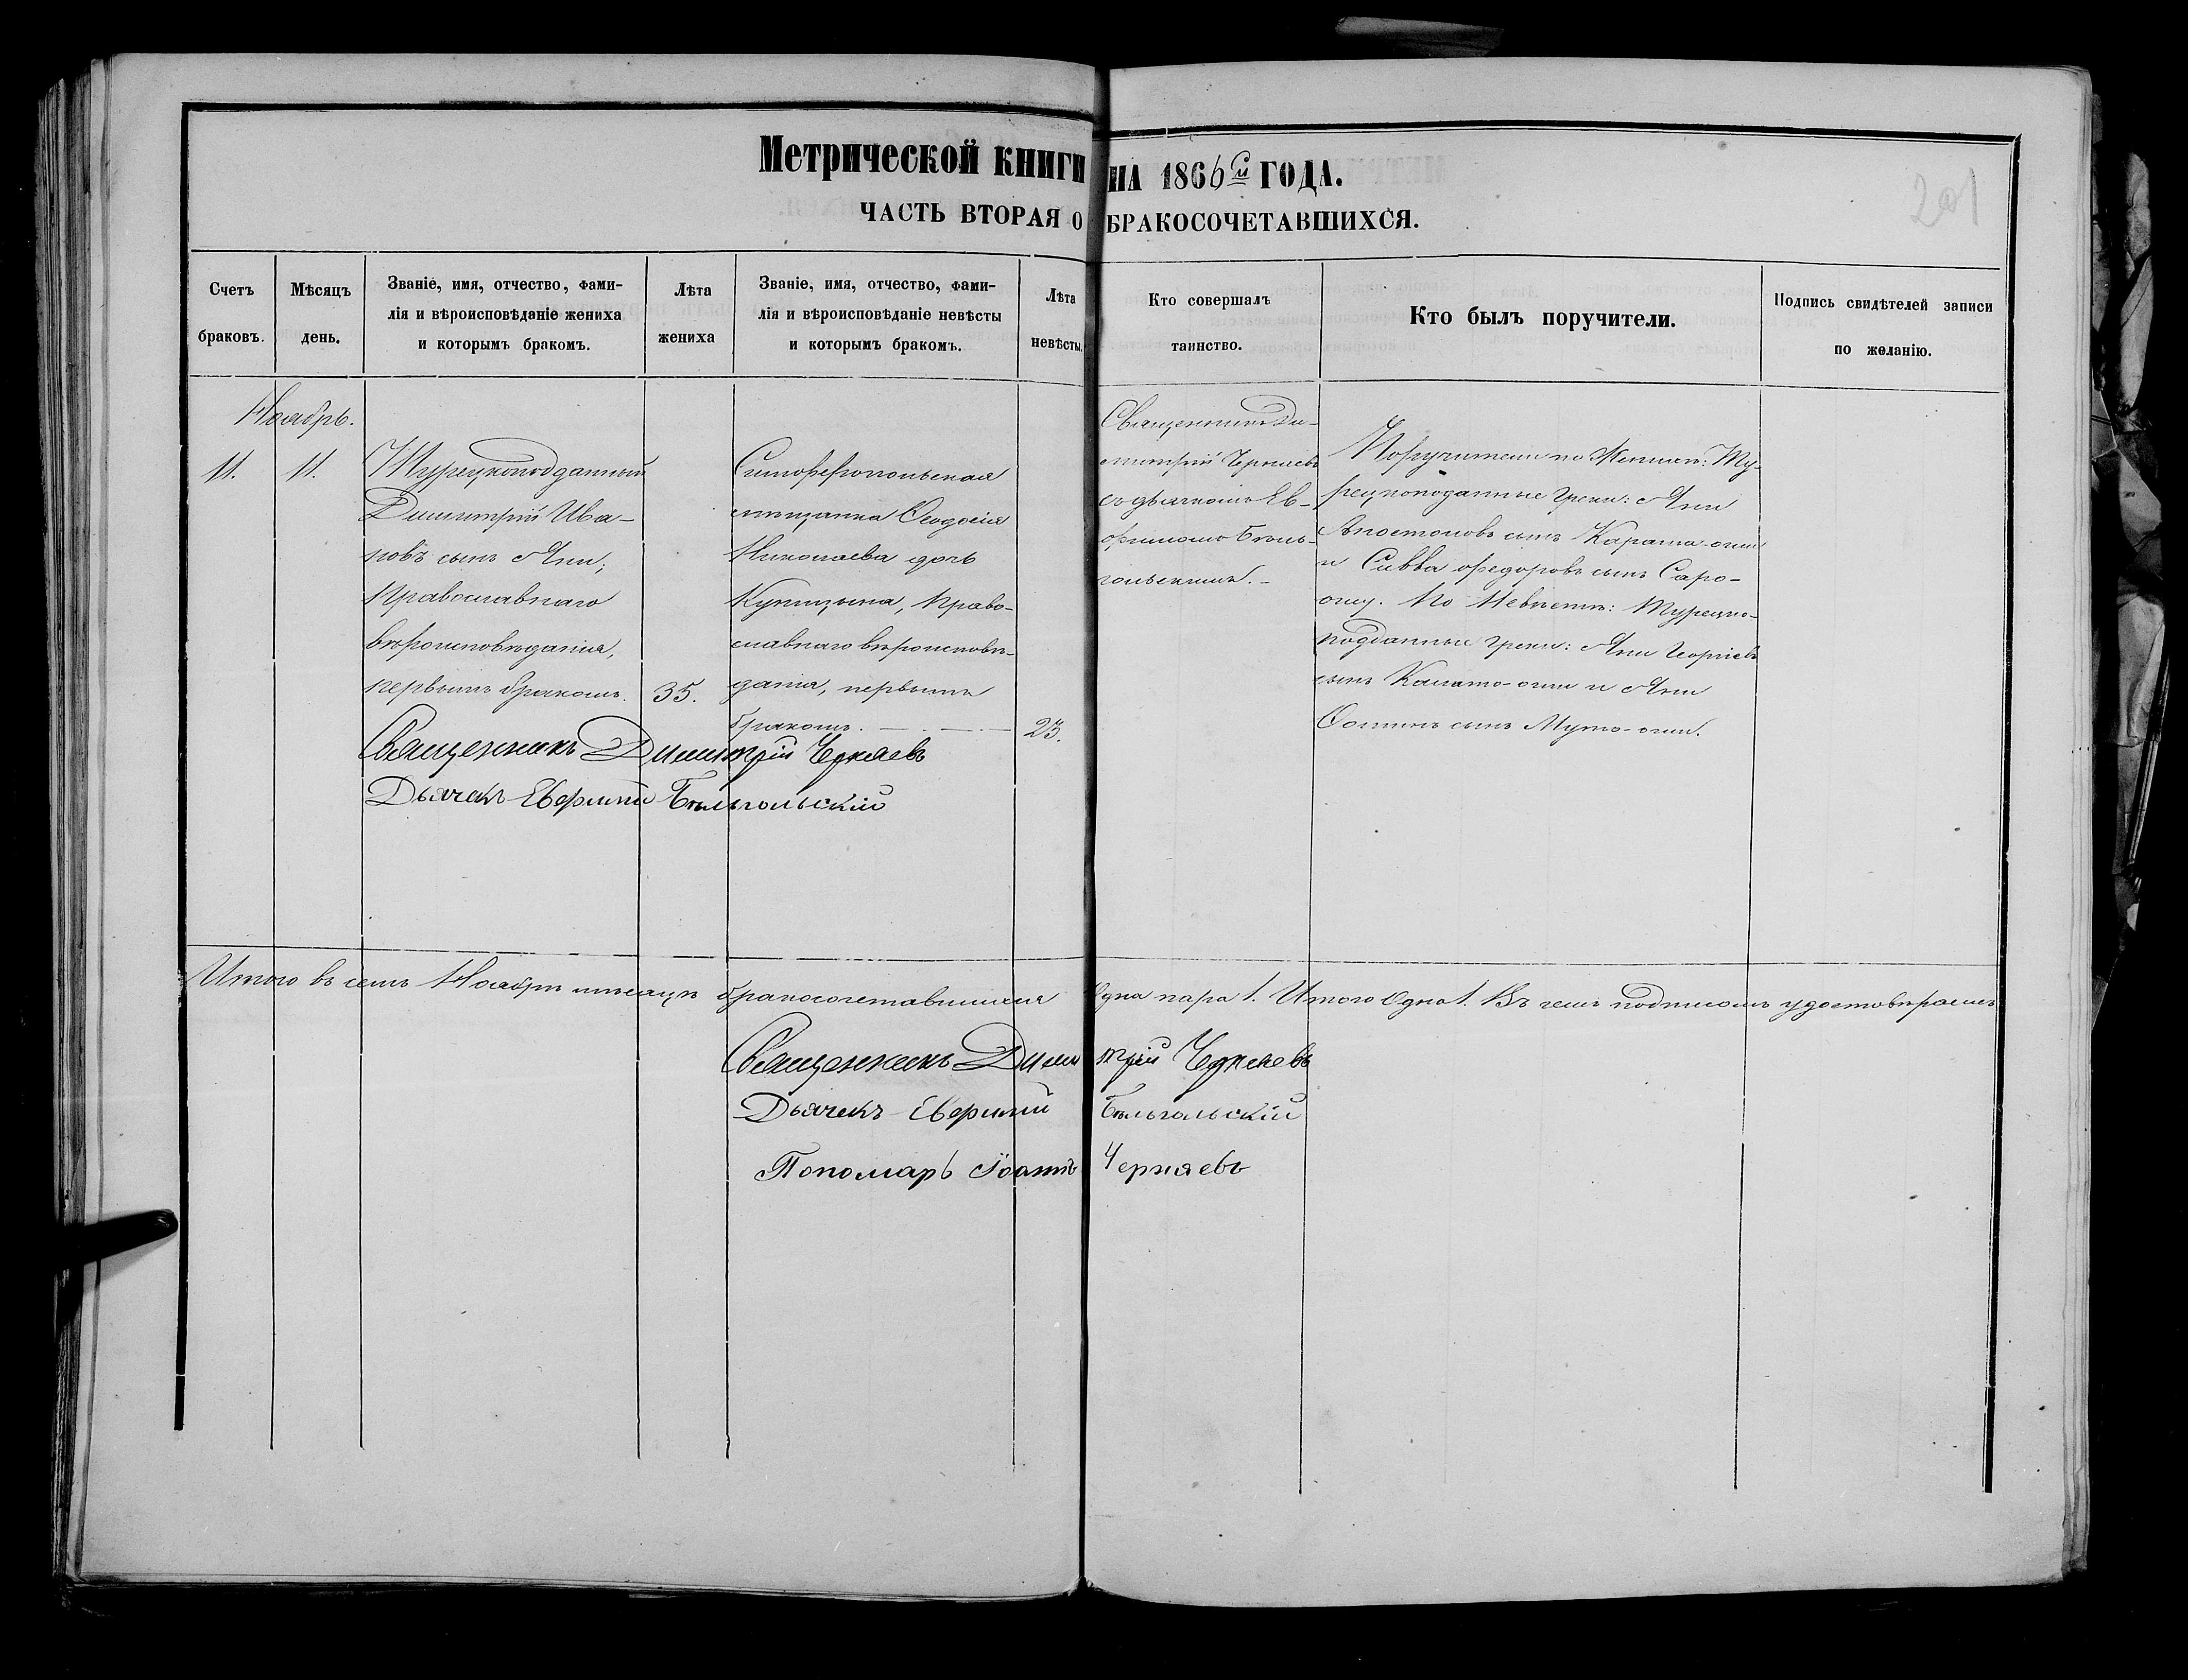 Метрической книги на 1866й года.
201
ЧАСТЬ ВТОРАЯ О БРАКОСОЧЕТАВШИХСЯ.
Счетъ
браковъ.
Мѣсяцъ
день.
Званіе, имя, отчество, фами-
лія и вѣроисповѣданіе жениха
и которымъ бракомъ.
Лѣта
жениха
Званіе, имя, отчество, фами-
лія и вѣроисповѣданіе невѣсты
и которымъ бракомъ.
Лѣта
невѣсты.
Кто совершалъ
таинство.
Кто былъ поручители.
Подпись свидѣтелей записи
по желанію.
Ноябрь.
11.
11.
Турецкоподданный
Димитрій Ива-
новъ сынъ Яни,
православнаго
вѣроисповѣданія,
первымъ бракомъ.
35.
Симферопольская
мѣщанка Ѳеодосія
Николаева дочь
Купицына, право-
славнаго вѣроисповѣ-
данія, первымъ
бракомъ.
23.
Священникъ Ди-
митрій Черняевъ
съ дьячкомъ Ев-
фиміомъ Бѣль-
гольскимъ.
Поручители по Женихѣ: Ту-
рецкоподанные Греки: Яни
Апостоловъ сынъ Карама-огли
и Савва Федоровъ сынъ Саро-
оглу. По Невѣстѣ: Турецко-
подданные Греки: Яни Георгіевъ
сынъ Каламо-огли и Яни
Фотинъ сынъ Муто-огли.
Священникъ Димитрій Черняевъ
Дьячекъ Евфимій Бѣльгольскій
Итого въ семъ Ноябрѣ мѣсяцѣ бракосочетавшихся Одна пара 1. Итого Одна 1. Въ чемъ подписомъ удостовѣряемъ
Священникъ Димитрій Черняевъ
Дьячекъ Евфимій Бѣльгольскій
Пономарь Іоаннъ Черняевъ